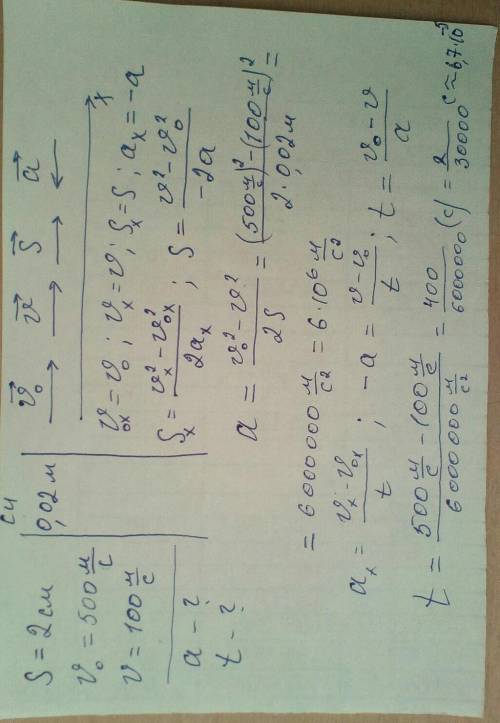 S = 2 см
СИ
0,02 м
v₀ = 500 м/с
v = 100 м/с
a - ?
t - ?
v⃗₀ v⃗ S⃗ a⃗
x
v₀ₓ = v₀ ; vₓ = v ; Sₓ = S ; aₓ = -a
Sₓ = (vₓ² - v₀ₓ²)/(2aₓ) ; S = (v² - v₀²)/(-2a)
a = (v₀² - v²)/(2S) = ((500 м/с)² - (100 м/с)²)/(2·0,02 м) =
= 6000000 м/с² = 6·10⁶ м/с²
aₓ = (vₓ - v₀ₓ)/t ; -a = (v - v₀)/t ; t = (v₀ - v)/a
t = (500 м/с - 100 м/с)/(6000000 м/с²) = 400/6000000 (с) = 2/30000 с ≈ 6,7·10⁻⁵